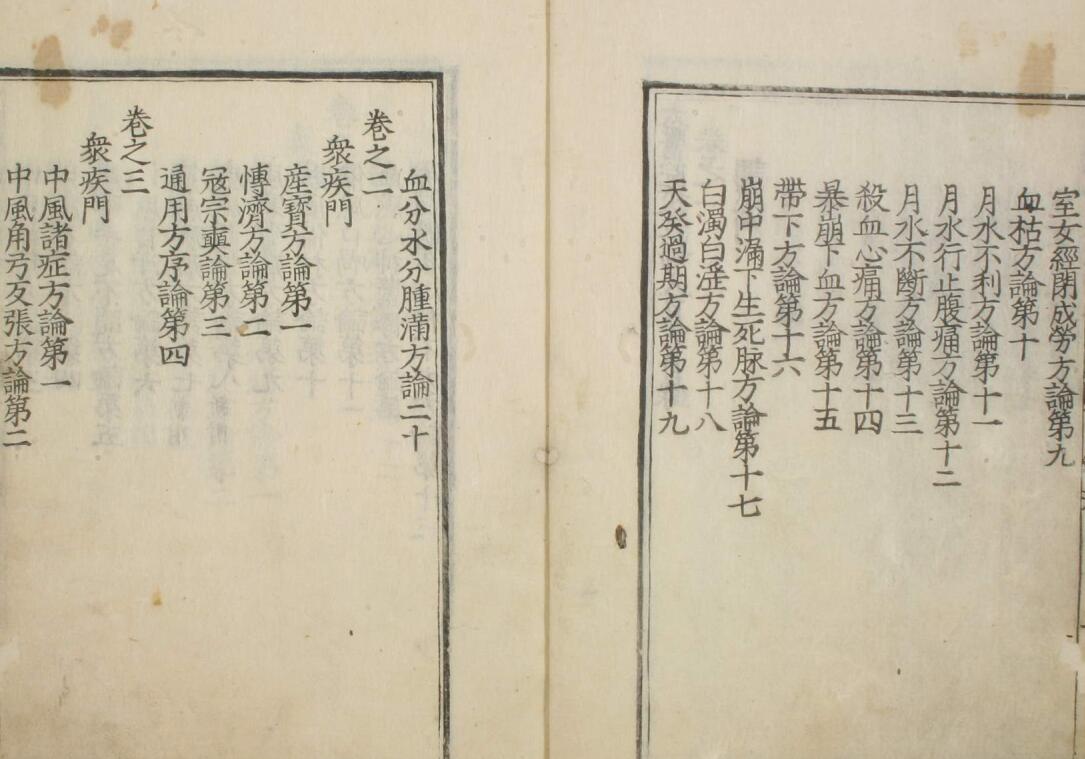 室女經閉成勞方論第九
血枯方論第十
月水不利方論第十一
月水行止腹痛方論第十二
月水不斷方論第十三
殺血心痛方論第十四
暴崩下血方論第十五
帶下方論第十六
崩中漏下生死脉方論第十七
白濁白淫方論第十八
天癸過期方論第十九
血分水分腫滿方論二十
卷之二
衆疾門
產寶方論第一
博濟方論第二
冦宗奭論第三
通用方序論第四
卷之三
衆疾門
中風諸症方論第一
中風角弓反張方論第二